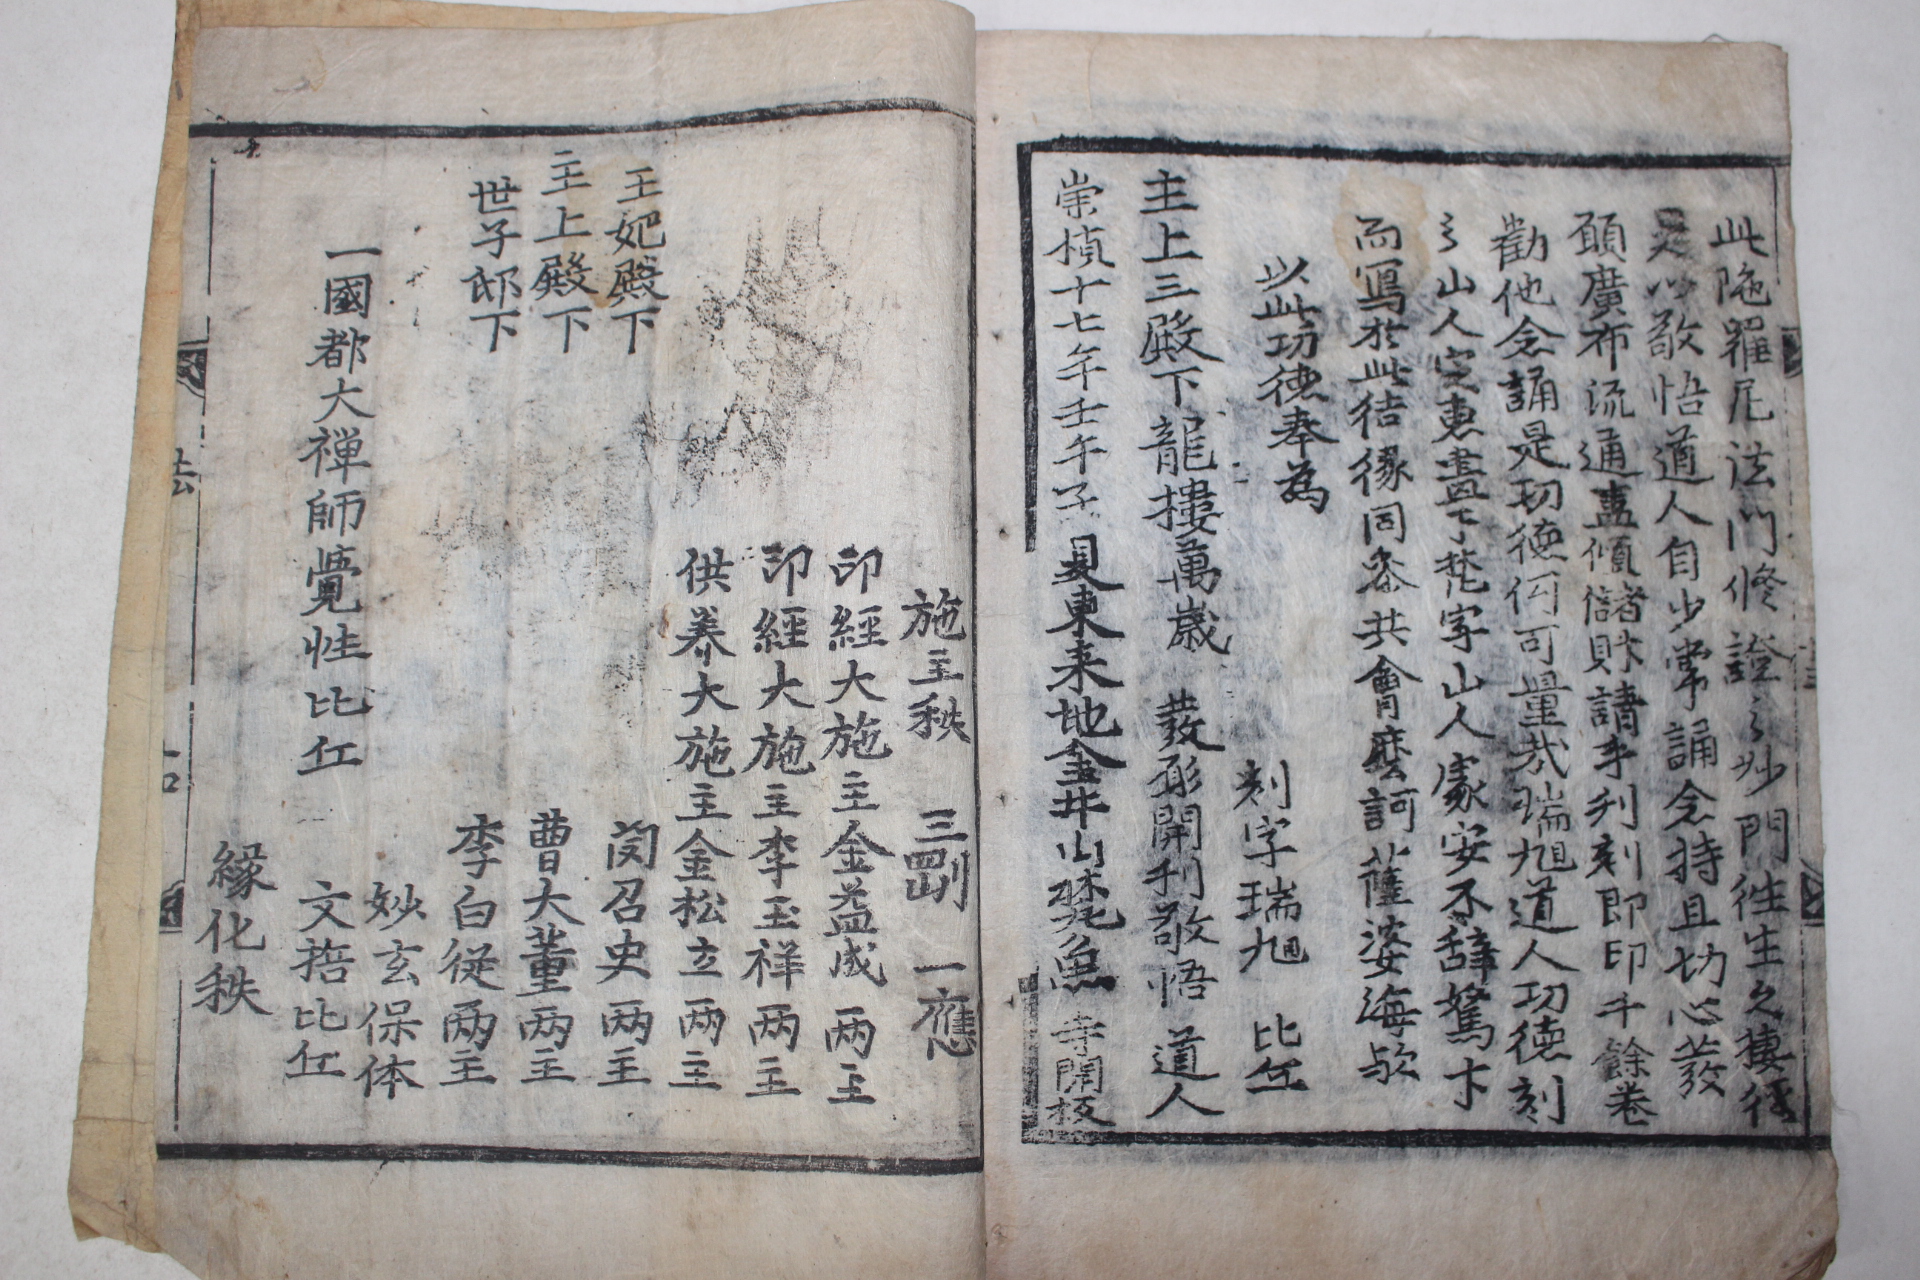 此陁羅尼法門修證之妙門徃生之棲徑
是以敬悟道人自少常誦念持且切心發
願廣布流通盖傾儲財請手刋刻即印千餘卷
勸他念誦是功德何可量哉瑞旭道人功德刻
之山人定惠盡丁梵字山人家安不辞駑卞
而寫於此結縁同叅共會麽訶薩婆海欤
以此功德奉為
刻字瑞旭 比丘
主上三殿下龍樓萬歲 發彩開刋敬悟 道人
崇楨十七年壬午子月東来地金井山梵魚寺開板
施主秩 三䍐 一應
印經大施主金益成兩主
印經大施主李玉祥兩主
供養大施主金松立兩主
王妃殿下 闵召史兩主
主上殿下 曹大董兩主
世子邸下 李白從兩主
妙玄保体
一國都大禅師覺性比丘 文捂比丘
緣化秩
法